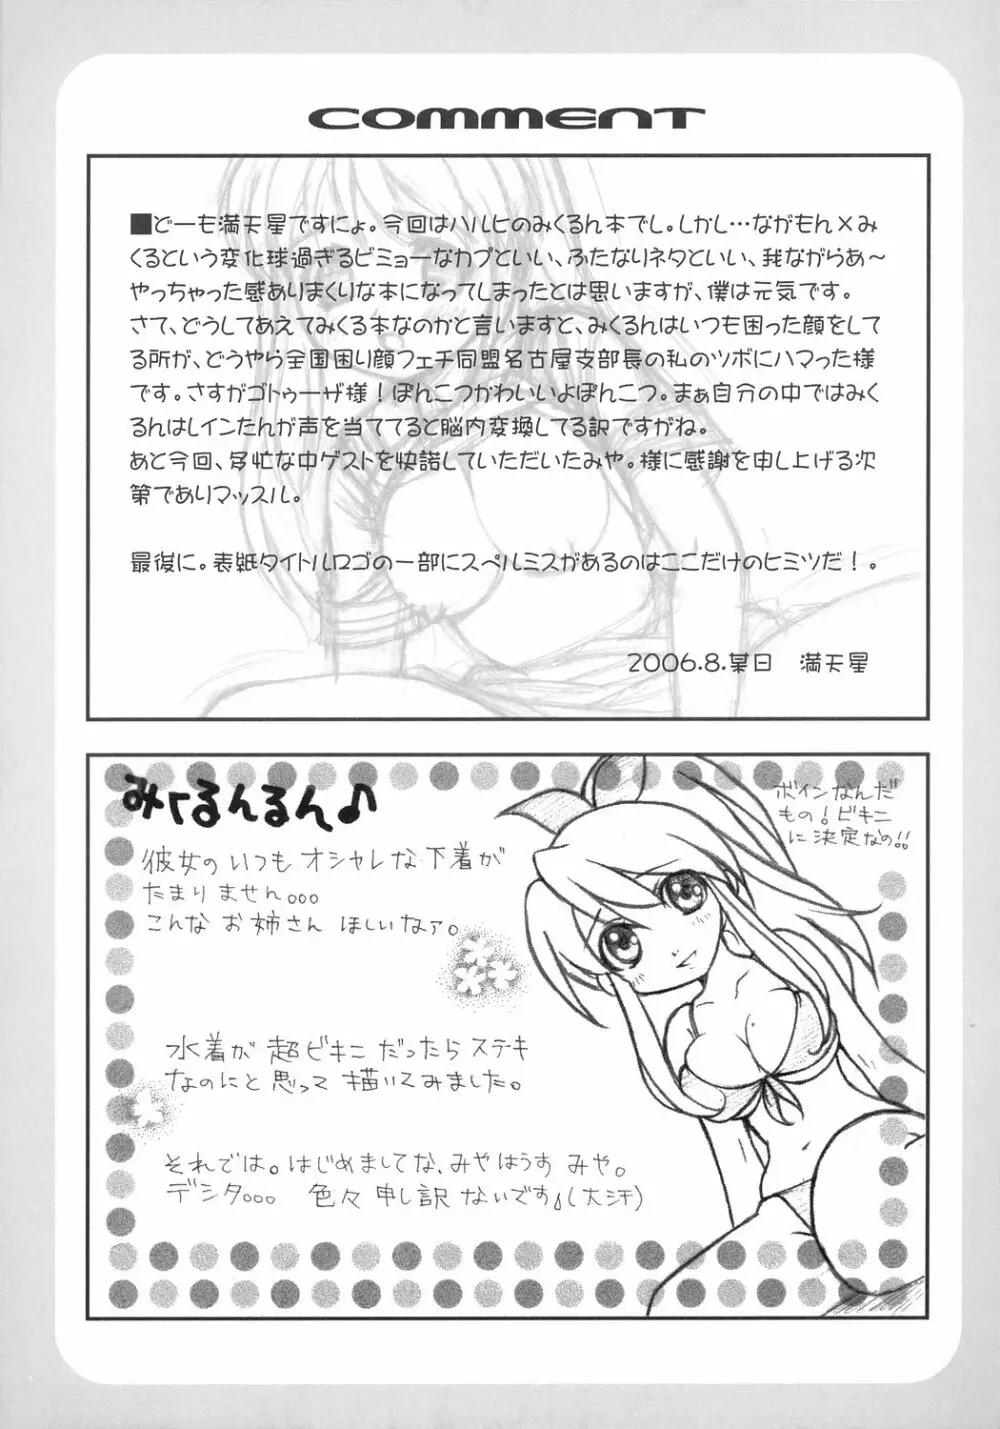 COMMENT
■どーも満天星ですにょ。今回はハルヒのみくるん本でし。しかし…ながもん×み
くるという変化球過ぎるビミョーなカプといい、ふたなりネタといい、我ながらあ～
やっちゃった感ありまくりな本になってしまったとは思いますが、僕は元気です。
さて、どうしてあえてみくる本なのかと言いますと、みくるんはいつも困った顔をして
る所が、どうやら全国困り顔フェチ同盟名古屋支部長の私のツボにハマった様
です。さすがゴトゥーザ様！ぽんこつかわいいよぽんこつ。まぁ自分の中ではみく
るんはレインたんが声を当ててると脳内変換してる訳ですがね。
あと今回、多忙な中ゲストを快諾していただいたみや。様に感謝を申し上げる次
第でありマッスル。
最後に。表紙タイトルロゴの一部にスペルミスがあるのはここだけのヒミツだ！。
2006.8.某日　満天星
みくるんるん♪
ボインなんだ
もの！ビキニ
に決定なの!!
彼女のいつもオシャレな下着が
たまりません。。。
こんなお姉さんほしいなァ。
水着が超ビキニだったらステキ
なのにと思って描いてみました。
それでは。はじめましてな、みやはうすみや。
デシタ。。。　色々申し訳ないです♪(大汗)